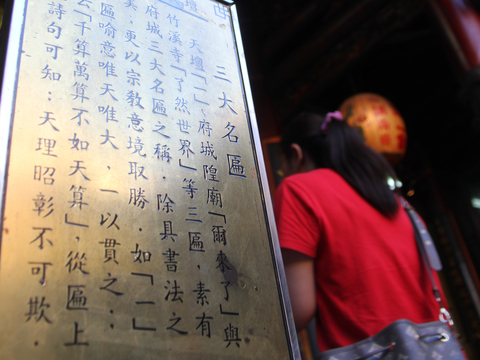 三大名匾
天壇「一」府城隍廟「爾來了」與
竹溪寺「了然世界」等三匾，素有
府城三大名匾之稱．除具書法之
美，更以宗教意境取勝．如「一」
匾喻意唯天唯大，一以貫之；
云「千算萬算不如天算」，從匾上
詩句可知：天理昭彰不可欺．